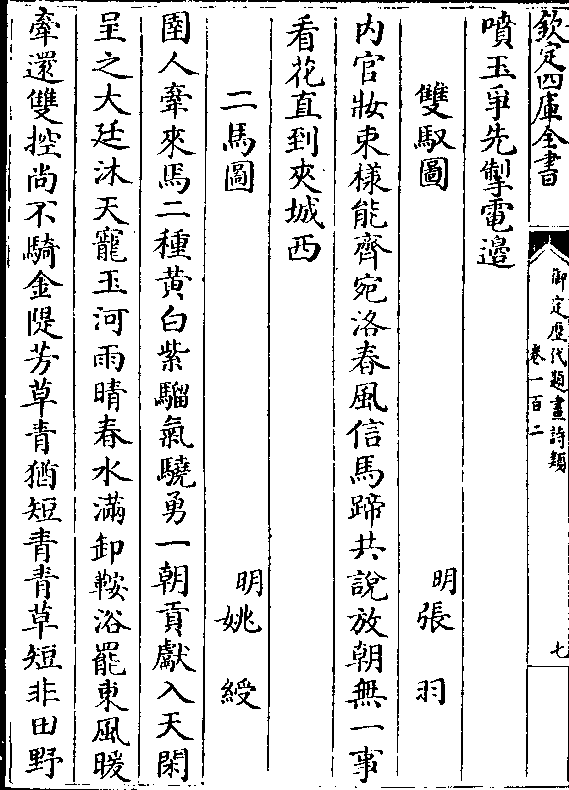 欽定四庫全書
御定歷代題畫詩類
卷一百二
七
噴玉爭先掣電邉
雙馭圖 明張羽
内官妝束様能齊宛洛春風信馬蹄共說放朝無一事
看花直到夾城西
二馬圖 明姚綬
圉人牽來馬二種黄白紫騮氣驍勇一朝貢獻入天閑
呈之大廷沐天寵玉河雨晴春水滿卸鞍浴罷東風暖
牽還雙控尚不騎金隄芳草青猶短青青草短非田野